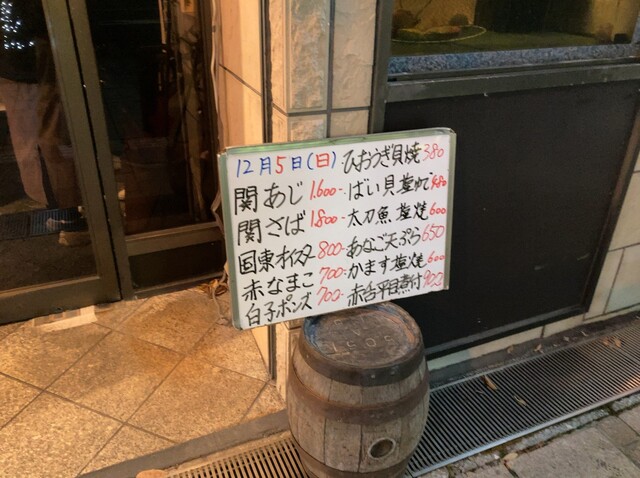 12月5日(日)
関あじ 1.600-
関さば 1.800-
国東オイスター 800-
赤なまこ 700-
白子ポンズ 700-
ひおうぎ貝焼 380
ばい貝塩ゆで 480
太刀魚塩焼 600
あなご天ぷら 650
かます塩焼 600
赤舌平目煮付 900